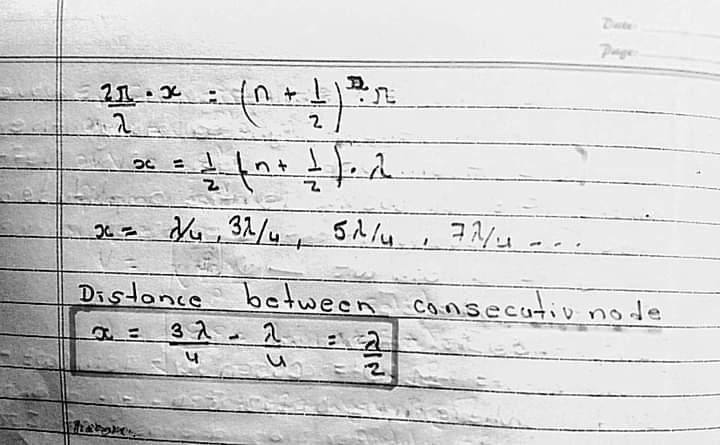 Date
Page
2π/λ · x = (n + 1/2) · π
x = 1/2 (n + 1/2) · λ
x = λ/4, 3λ/4, 5λ/4, 7λ/4 - - -
Distance between consecutiv node
x = 3λ/4 - λ/4 = λ/2